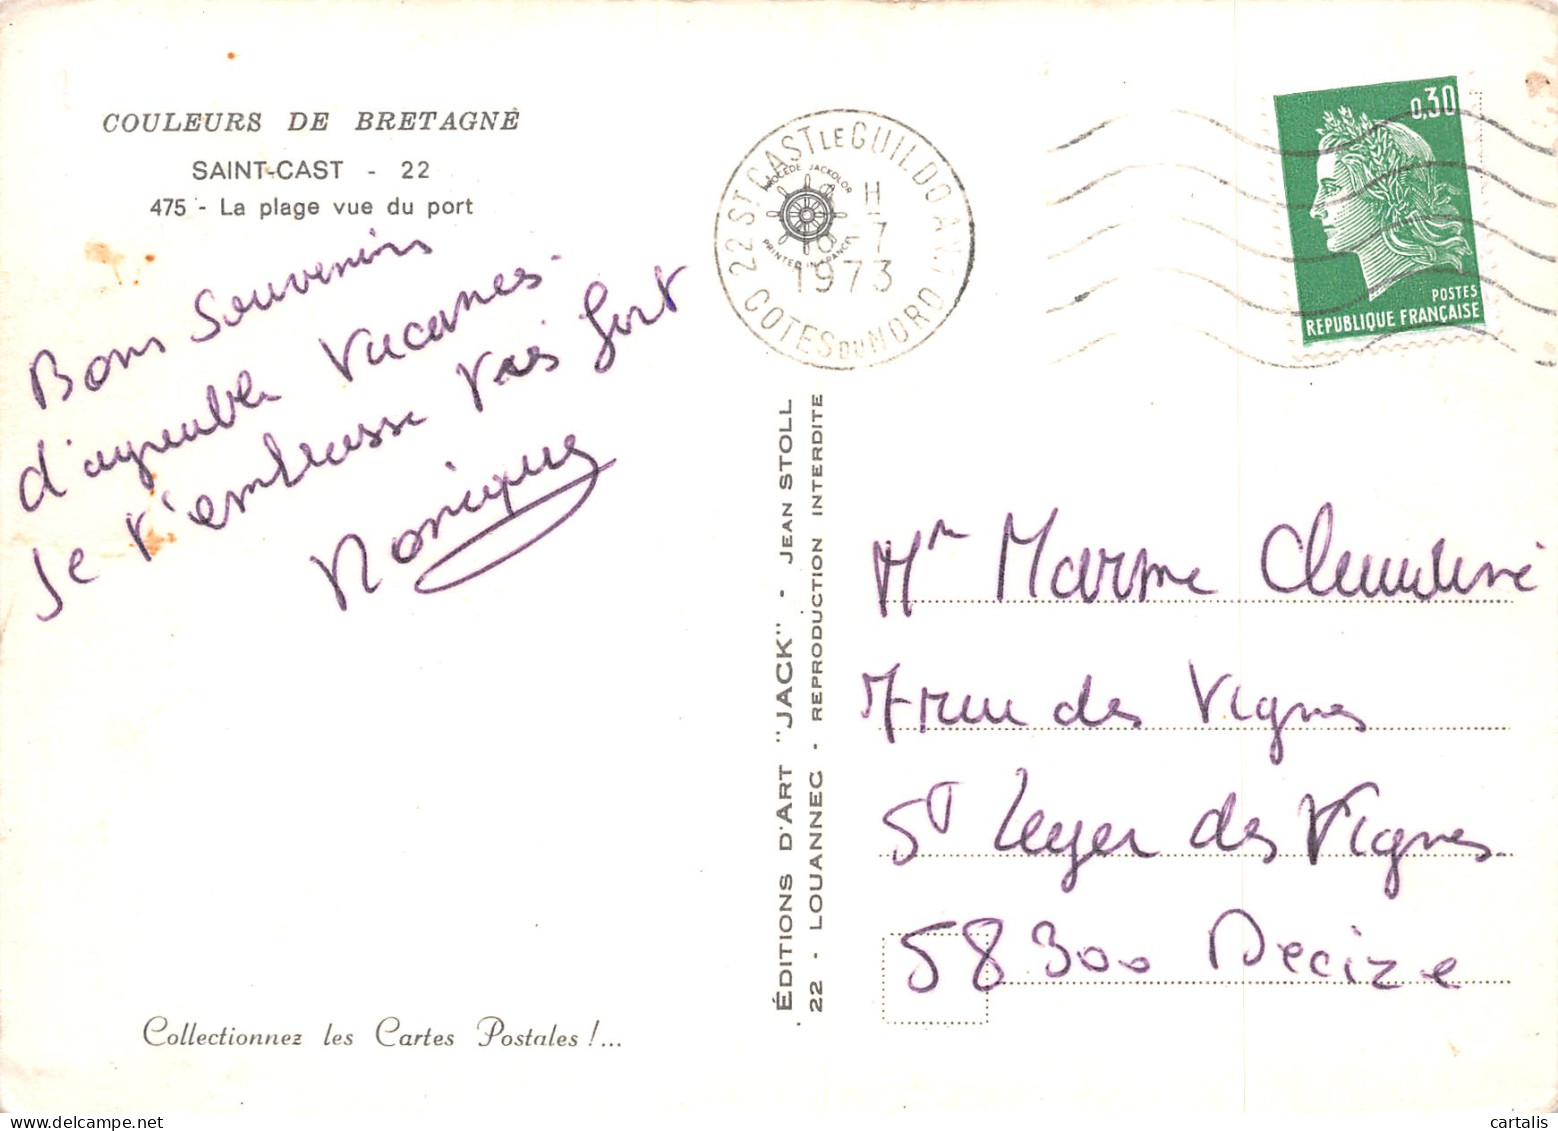 COULEURS DE BRETAGNE
SAINT-CAST - 22
475 - La plage vue du port
Bons Souvenirs
d'agreable Vacances.
Je t'embrasse très fort
Monique
Collectionnez les Cartes Postales !...
22 ST CAST LE GUILDO
COTES DU NORD
H
-7
1973
PROCÉDÉ JACKOLOR
PRINTED IN FRANCE
ÉDITIONS D'ART "JACK" - JEAN STOLL
22 - LOUANNEC - REPRODUCTION INTERDITE
0,30
POSTES
REPUBLIQUE FRANÇAISE
Mr
7 rue des Vignes
St Leger des Vignes
58300 Decize
cartalis